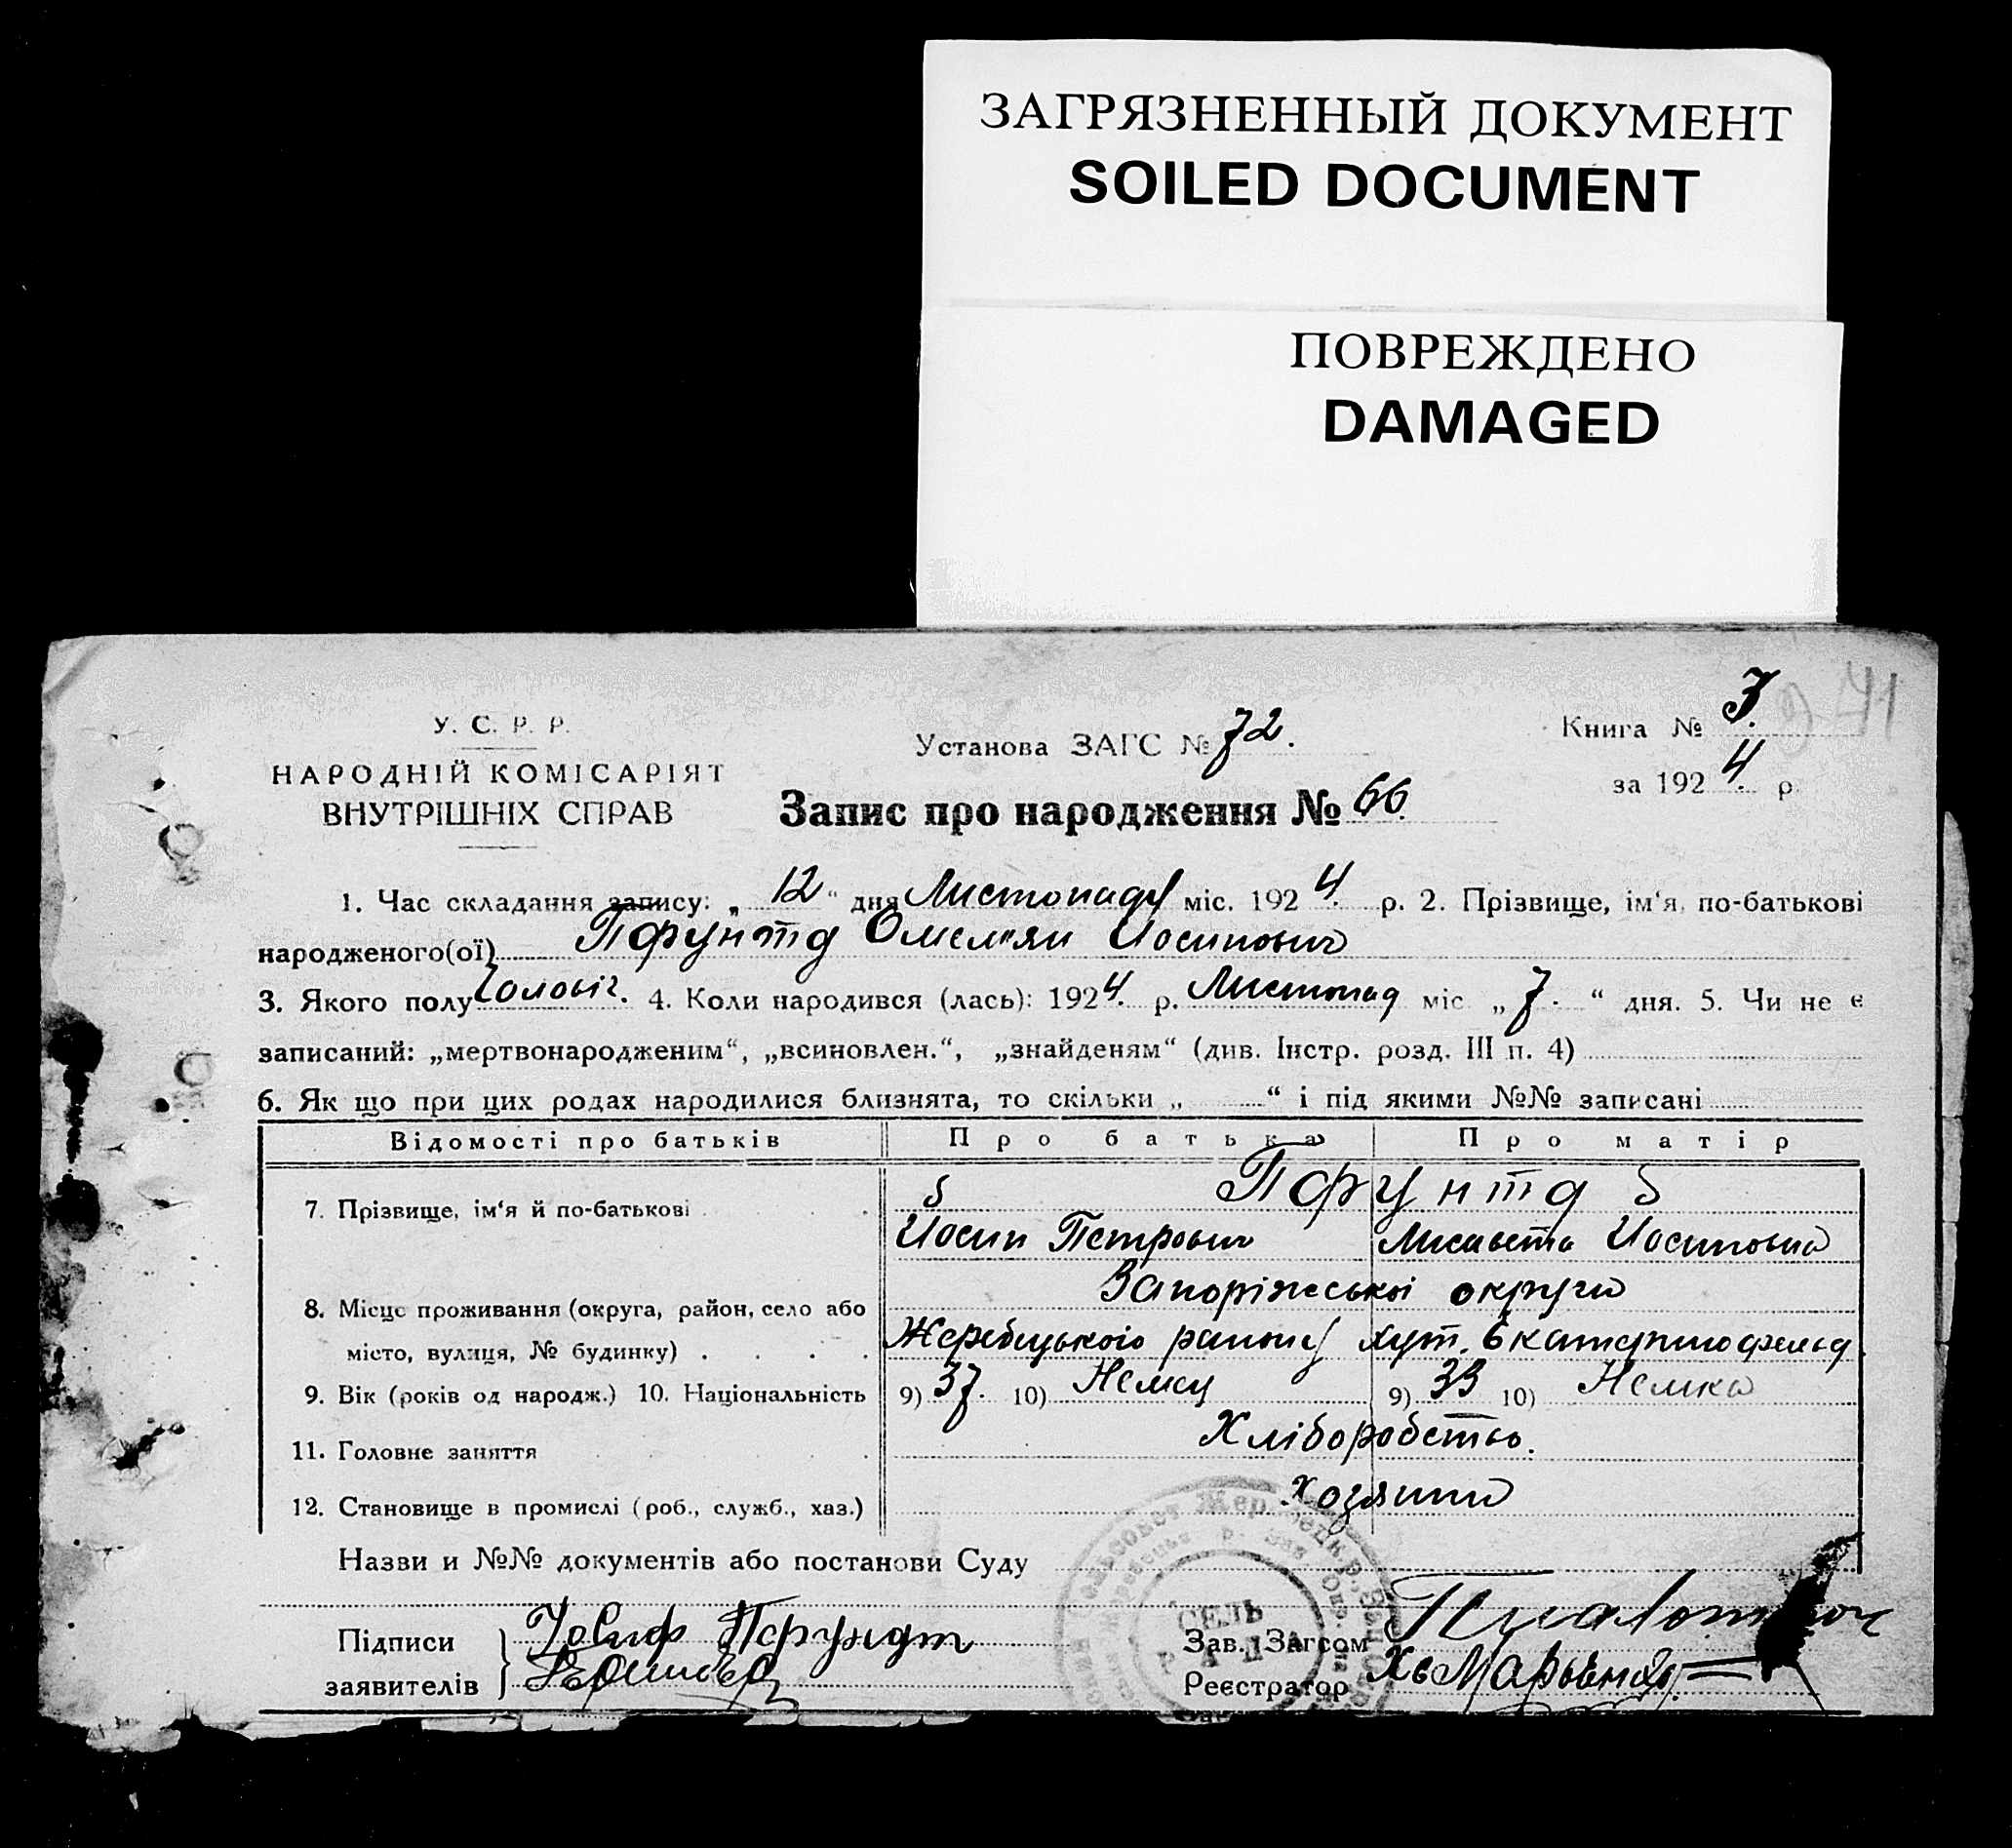 ЗАГРЯЗНЕННЫЙ ДОКУМЕНТ
SOILED DOCUMENT
ПОВРЕЖДЕНО
DAMAGED
71
У. С. Р. Р.
НАРОДНІЙ КОМІСАРІЯТ
ВНУТРІШНІХ СПРАВ
Установа ЗАГС № 72.
Книга № 3.
за 1924. р.
Запис про народження № 66.
1. Час складання запису: „ 12 “ дня Листопаду міс. 1924. р. 2. Прізвище, ім‘я, по-батькові
народженого(ої) Пфунтд Омелян Иосипович
3. Якого полу Чоловіч. 4. Коли народився (лась): 1924. р. Листопад міс „ 7. “ дня. 5. Чи не є
записаний: „мертвонародженим“, „всиновлен.“, „знайденям“ (див. Інстр. розд. III п. 4)
6. Як що при цих родах народилися близнята, то скільки „ “ і під якими №№ записані
Відомості про батьків Про батька Про матір
7. Прізвище, ім‘я й по-батькові Пфунтд
Иосип Петрович Лисавета Иосиповна
Запоріжської округи
8. Місце проживання (округа, район, село або
місто, вулиця, № будинку) Жеребецького району хут. Екатеринофельд
9. Вік (років од народж.) 10. Національність 9) 37. 10) Немец 9) 33 10) Немка
11. Головне заняття Хліборобство.
12. Становище в промислі (роб., служб., хаз.) Хозяина
Назви и №№ документів або постанови Суду
СЕЛЬ
РАДА
Підписи
заявителів Иосиф Пфундт
Зав. Загсом
Реєстратор